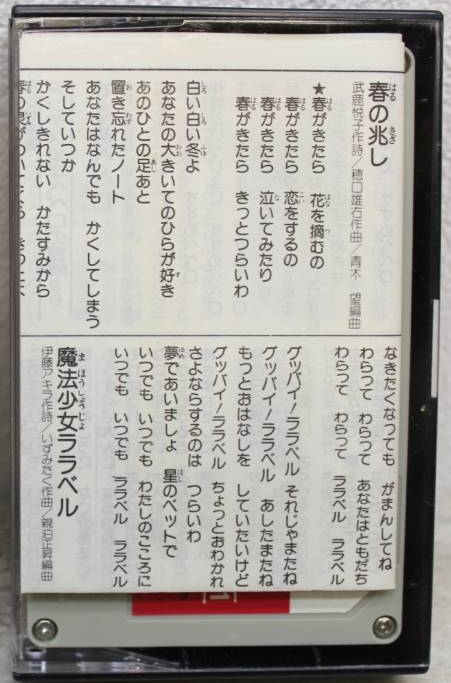 春の兆し
武鹿悦子作詩／穂口雄右作曲／青木　望編曲
★春がきたら　花を摘むの
春がきたら　恋をするの
春がきたら　泣いてみたり
春がきたら　きっとつらいわ
白い白い冬よ
あなたの大きいてのひらが好き
あのひとの足あと
置き忘れたノート
あなたはなんでも　かくしてしまう
そしていつか
かくしきれない　かたすみから
なきたくなっても　がまんしてね
わらって　わらって　あなたはともだち
わらって　わらって　ララベル　ララベル
グッバイ！ララベル　それじゃまたね
グッバイ！ララベル　あしたまたね
もっとおはなしを　していたいけど
グッバイ！ララベル　ちょっとおわかれ
さよならするのは　つらいわ
夢であいましょ　星のベットで
いつでも　いつでも　わたしのこころに
いつでも　いつでも　ララベル　ララベル
魔法少女ララベル
伊藤アキラ作詩／いずみたく作曲／親泊正昇編曲
1